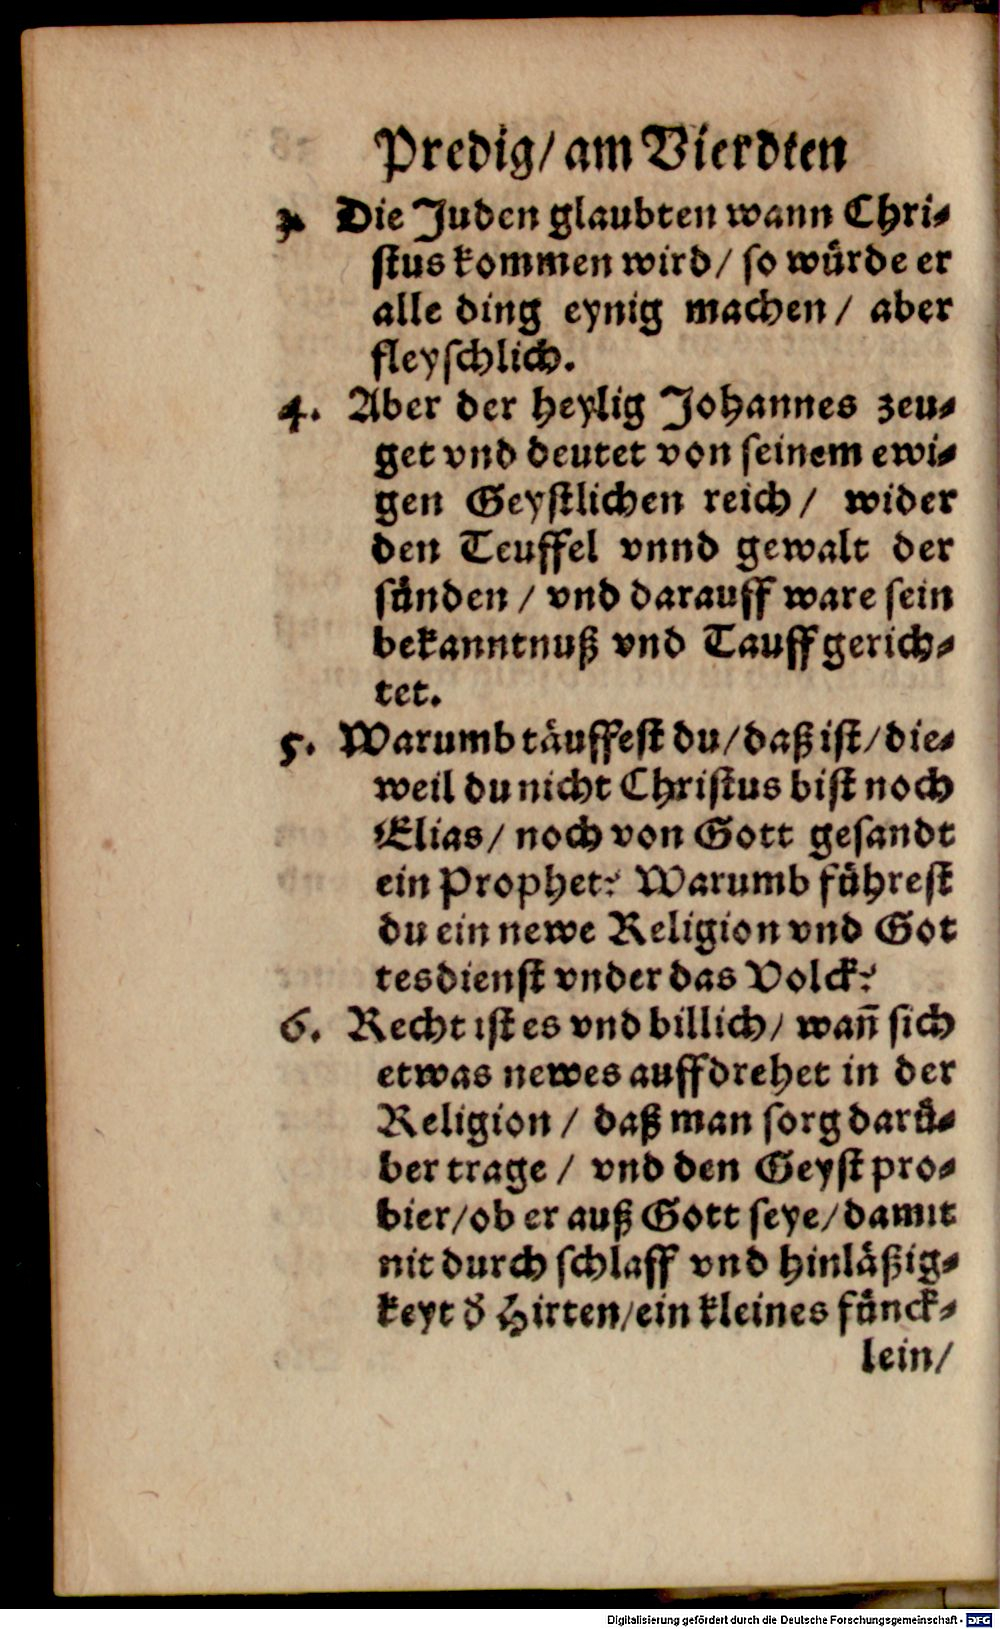 Predig/ am Vierdten
3. Die Juden glaubten wann Chri⸗
ſtus kommen wird/ ſo wuͤrde er
alle ding eynig machen/ aber
fleyſchlich.
4. Aber der heylig Johannes zeu⸗
get vnd deutet von ſeinem ewi⸗
gen Geyſtlichen reich/ wider
den Teuffel vnnd gewalt der
ſuͤnden/ vnd darauff ware ſein
bekanntnuß vnd Tauff gerich⸗
tet.
5. Warumb taͤuffeſt du/ daß iſt/ die⸗
weil du nicht Chriſtus biſt noch
Elias/ noch von Gott geſandt
ein Prophet? Warumb fuͤhreſt
du ein newe Religion vnd Got
tesdienſt vnder das Volck?
6. Recht iſt es vnd billich/ wan̄ ſich
etwas newes auffdrehet in der
Religion/ daß man ſorg daruͤ⸗
ber trage/ vnd den Geyſt pro⸗
bier/ ob er auß Gott ſeye/ damit
nit durch ſchlaff vnd hinlaͤßig⸗
keyt d̓ Hirten/ ein kleines fuͤnck⸗
lein/
Digitalisierung gefördert durch die Deutsche Forschungsgemeinschaft - DFG